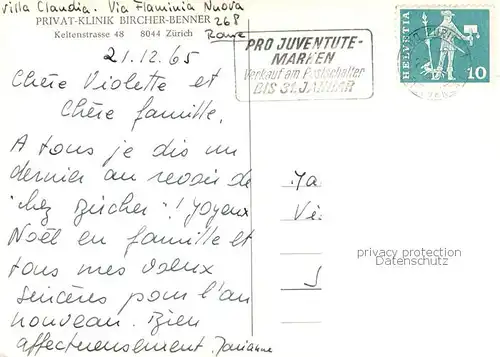 Villa Claudia. Via Flaminia Nuova
268
Rome
PRIVAT-KLINIK BIRCHER-BENNER
Keltenstrasse 48 8044 Zürich
21.12.65
PRO JUVENTUTE-
MARKEN
Verkauf am Postschalter
BIS 31. JANUAR
HELVETIA
10
Chère Violette et
Chère famille,
A tous je dis un
dernier au revoir de
"chez Bircher"! Joyeux
Noël en famille et
tous mes voeux
sincères pour l'an
nouveau. Bien
affectueusement.
privacy protection
Datenschutz